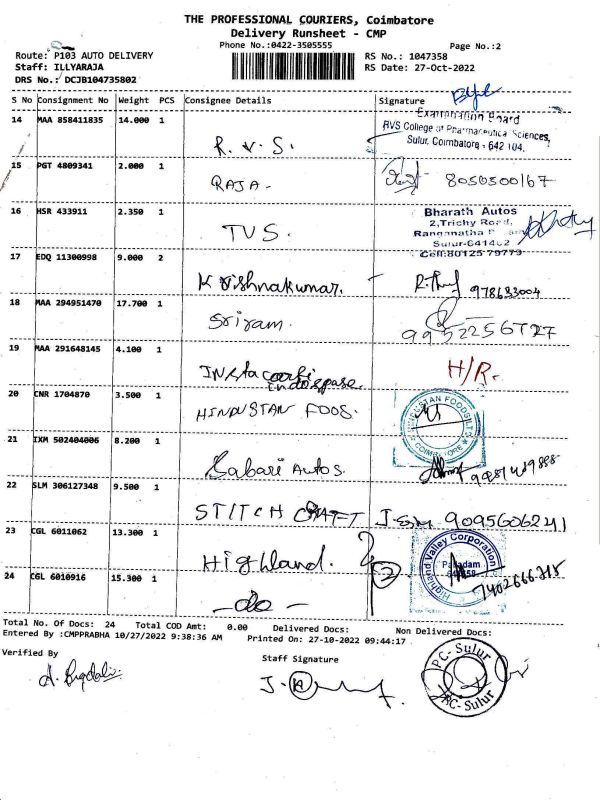 THE PROFESSIONAL COURIERS, Coimbatore
Delivery Runsheet - CMP
Phone No.:0422-3505555
Page No.:2
Route: P103 AUTO DELIVERY
RS No.: 1047358
Staff: ILLYARAJA
RS Date: 27-Oct-2022
DRS No.: DCJB104735802
S No Consignment No Weight PCS Consignee Details Signature
14 MAA 858411835 14.000 1 R.V.S.
Examination Board
RVS College of Pharmaceutical Sciences,
Sulur, Coimbatore - 642 104.
15 PGT 4809341 2.000 1 RAJA-
16 HSR 433911 2.350 1 TVS.
Bharath Autos
2,Trichy Road,
Ranganatha
Sulur-641402
Cell:80125 79779
17 EDQ 11300998 9.000 2 Krishnakumar.
18 MAA 294951470 17.700 1 Sriram.
19 MAA 291648145 4.100 1 H/R.
20 CNR 1704870 3.500 1 HINDUSTAN FOOS.
21 IXM 502404006 8.200 1 Sabari Autos.
22 SLM 306127348 9.500 1 STITCH CRAFT 9095606241
23 CGL 6011062 13.300 1 Highland.
Highland Valley Corporation
24 CGL 6010916 15.300 1 -do-
2
Total No. Of Docs: 24 Total COD Amt: 0.00 Delivered Docs: Non Delivered Docs:
Entered By :CMPPRABHA 10/27/2022 9:38:36 AM Printed On: 27-10-2022 09:44:17
Verified By
Staff Signature
PC-Sulur